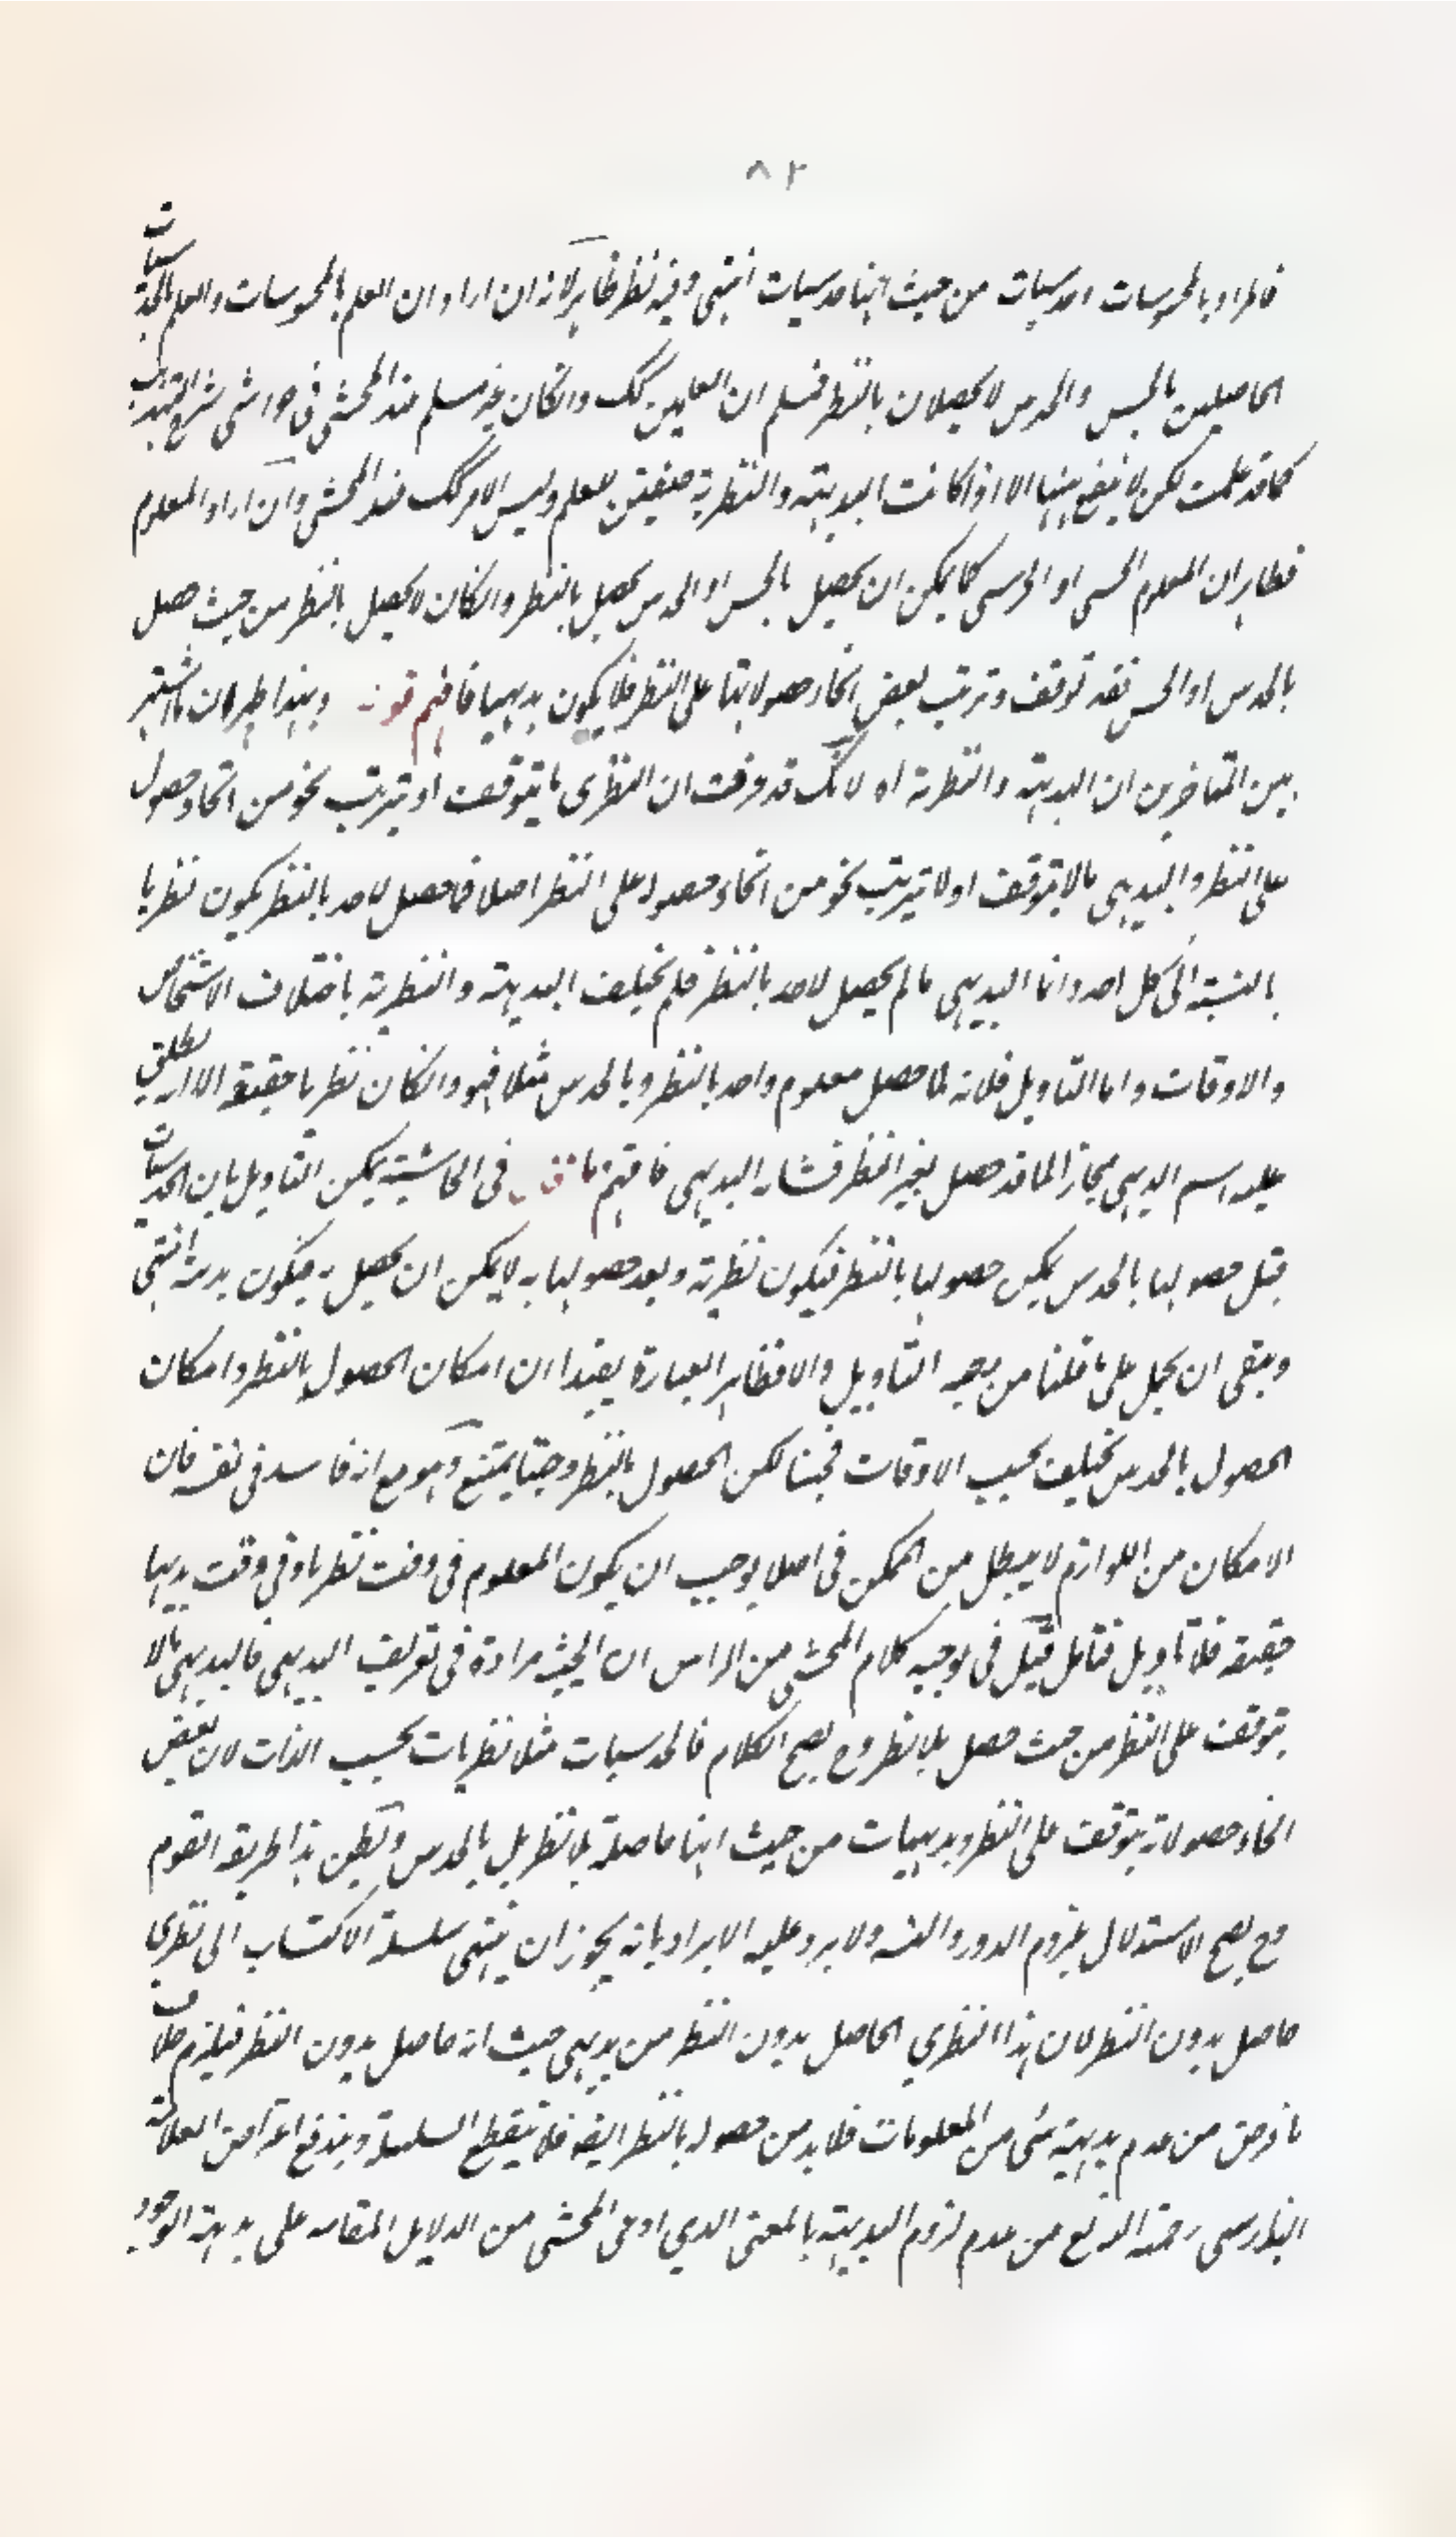 ٨٢
فالمراد بالمحسوسات الحدسيات من حيث انها حدسيات انتهى وفيه نظر ظاهر لانه ان اراد ان العلم بالمحسوسات والعلم بالحدسيات
الحاصلين بالحس والحدس لا يحصلان بالنظر فمسلم ان العلمين كك وانكان غير مسلم عند المحشى فى حواشى شرح التهذيب
كما قد علمت لكن لا ينفع ههنا الا اذا كانت البديهته والنظرية صفتين للعلم وليس الامر كك عند المحشى وان اراد المعلوم
فظاهر ان المعلوم الحسى او الحدسى كما يمكن ان يحصل بالحس او الحدس يحصل بالنظر وانكان لا يحصل بالنظر من حيث حصل
بالحدس او الحس فقد توقف وترتب بعض انحاء حصولاتها على النظر فلا يكون بديهيا فافهم قوله وبهذا ظهر ان ما اشتهر
بين المتاخرين ان البديهته والنظرية اه لانك قد عرفت ان النظرى ما يتوقف او يترتب نحو من انحاء حصوله
على النظر والبديهى ما لا يتوقف او لا يترتب نحو من انحاء حصوله على النظر اصلا فما حصل لاحد بالنظر يكون نظريا
بالنسبة الى كل احد وانما البديهى ما لم يحصل لاحد بالنظر فلم تختلف البديهته والنظرية باختلاف الاشخاص
والاوقات واما التاويل فلانه لما حصل معلوم واحد بالنظر وبالحدس مثلا فهو وانكان نظريا حقيقة الا انه يطلق
عليه اسم البديهى مجازا لما قد حصل بغير النظر فشابه البديهى فافهم قال فى الحاشية يمكن التاويل بان الحدسيات
قبل حصولها بالحدس يمكن حصولها بالنظر فيكون نظرية وبعد حصولها به لا يمكن ان يحصل به فيكون بديهية انتهى
وينبغى ان يحمل على ما قلنا من وجه التاويل والا فظاهر العبارة يفيد ان امكان الحصول بالنظر وامكان
الحصول بالحدس يختلف بحسب الاوقات لكن الحصول بالنظر يمتنع وهو مع انه فاسد فى نفسه فان
الامكان من اللوازم لا يبطل من الممكن فى اصلا يوجب ان يكون المعلوم فى وقت نظريا وفى وقت بديهيا
حقيقة فلا تاويل فتامل قيل فى توجيه كلام المحشى من الراس ان الحيث مرادة فى تعريف البديهى فالبديهى ما لا
يتوقف على النظر من حيث حصل بلا نظر وح يصح الكلام فالحدسيات مثلا نظريات بحسب الذات لان بعض
انحاء حصولاته يتوقف على النظر وبديهيات من حيث انها حاصلة بلا نظر بل بالحدس ولكن هذا طريقه القوم
وح يصح الاستدلال بلزوم الدور والتسه ولا يرد عليه الايراد بانه يجوز ان ينتهى سلسلة الاكتساب الى نظرى
حاصل بدون النظر لان هذا النظري الحاصل بدون النظر من بديهى حيث انه حاصل بدون النظر فيلزم خلاف
ما فرض من عدم بديهية شى من المعلومات فلا بد من حصوله بالنظر ايضه فلا ينقطع السلسلة ويندفع اعتراض العلامة
رحمه الله من عدم لزوم البديهية بالمعنى الذي ادعى المحشى من الدلايل المقامه على بديهته الوجود